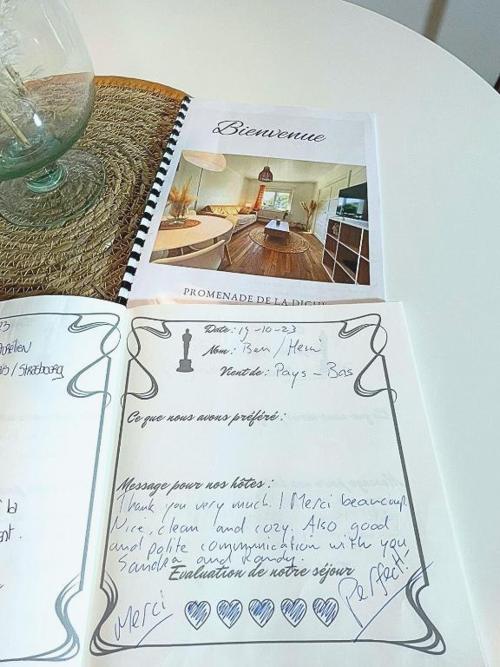 Bienvenue
PROMENADE DE LA DIGUE
23
/ STRASBOURG
la
Date : 19-10-23
Nom : Ben / Heni
Vient de : Pays-Bas
Ce que nous avons préféré :
Message pour nos hôtes :
Thank you very much! Merci beaucoup
Nice, clean and cozy. Also good
and polite communication with you
Sandra and Randy.
Evaluation de notre séjour
Merci
Perfect!